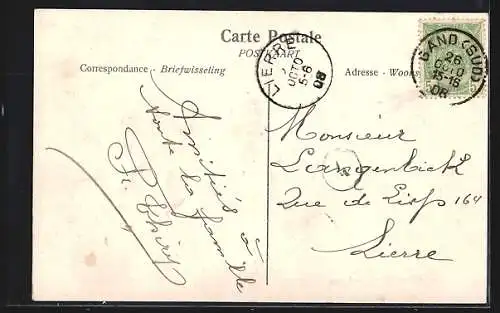 Carte Postale
POSTKAART
Correspondance - Briefwisseling
Adresse - Woons
LIERRE
OCTO
5-6
08
GAND (SUD)
26
OCTO
15-16
08
Amitiés à
toute la famille
Monsieur
Rue de 164
Lierre